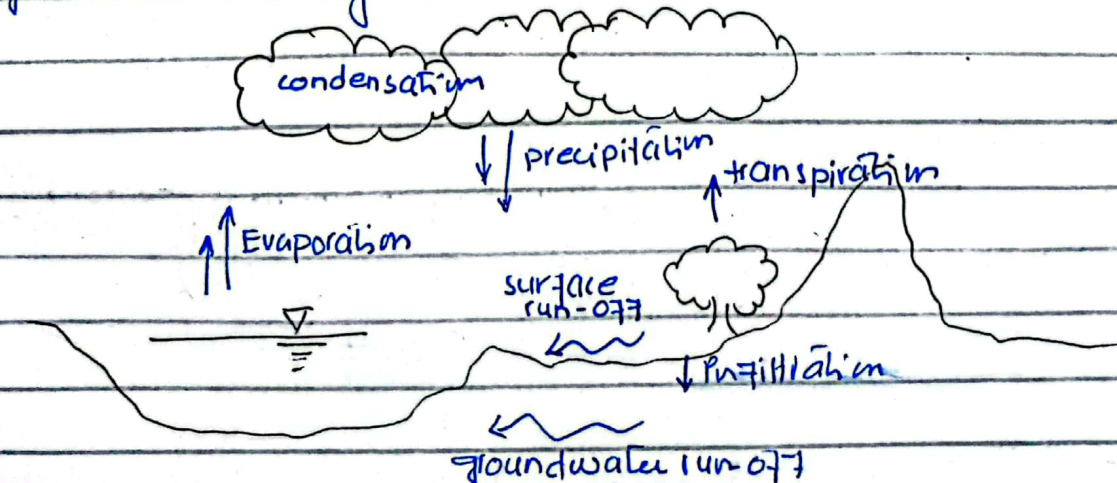 condensation
precipitation
transpiration
Evaporation
surface
run-off
infiltration
groundwater run-off